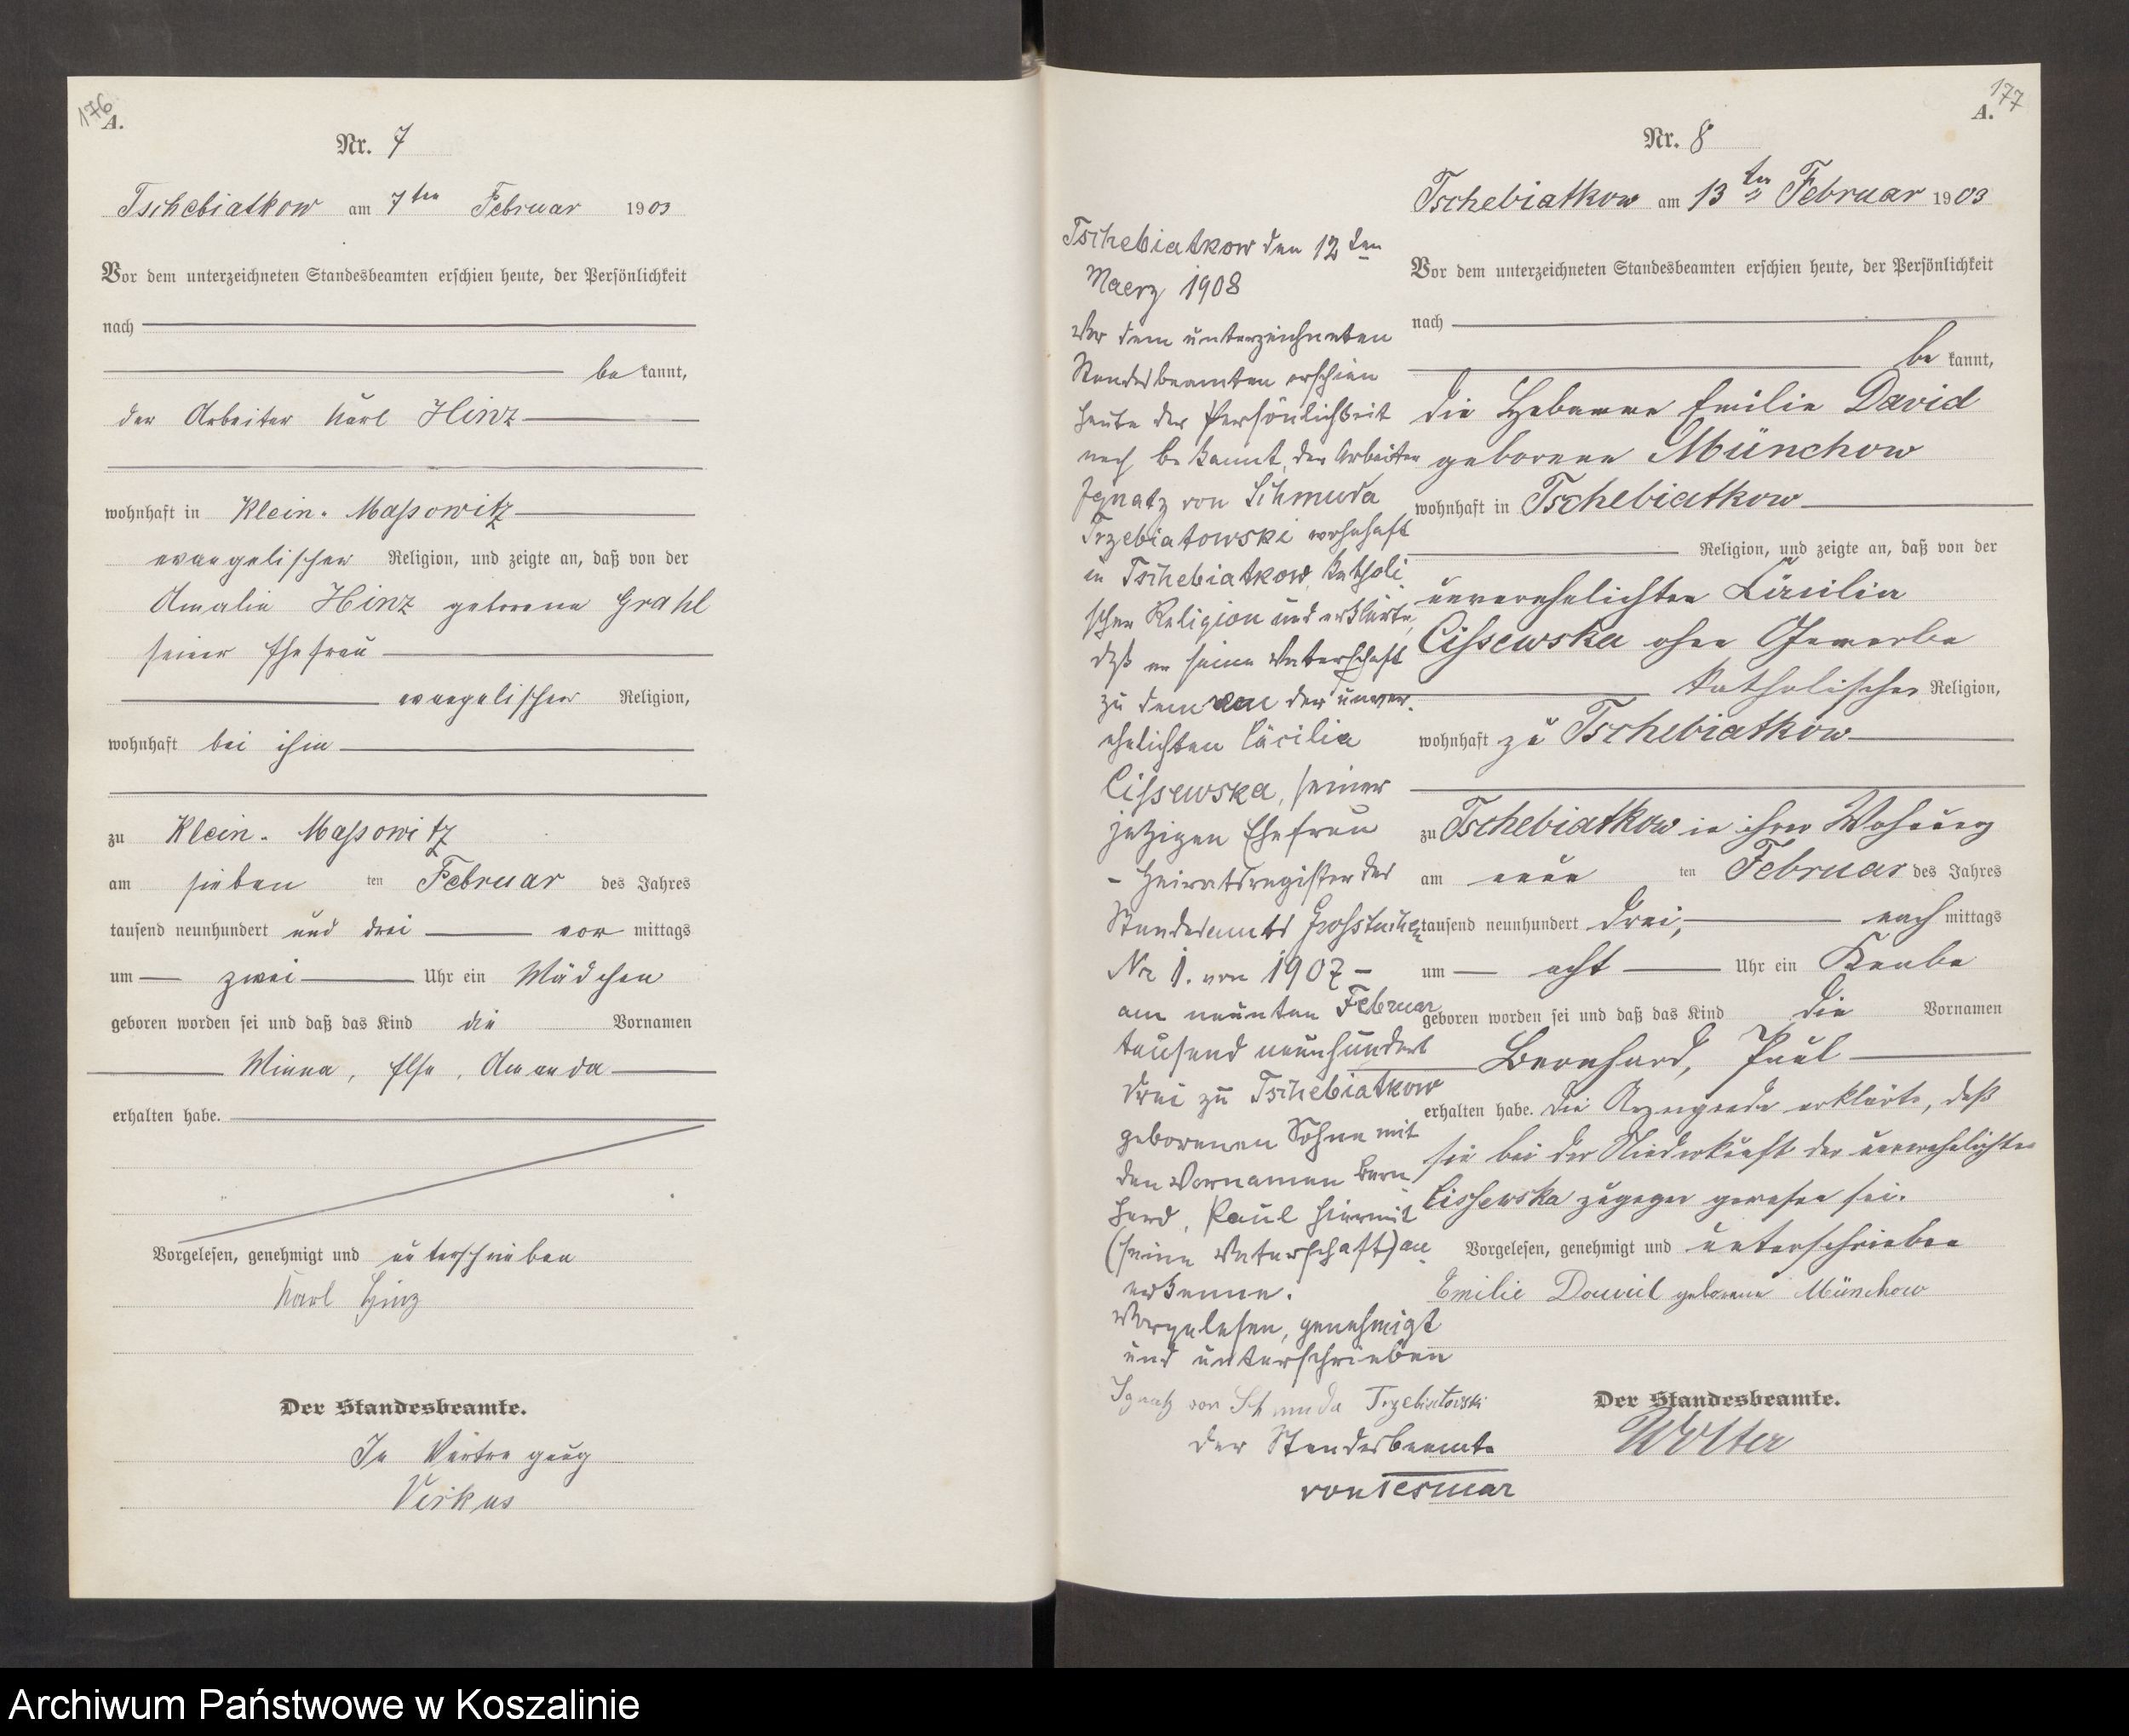 176
A.
Nr. 7
Tschebiatkow am 7ten Februar 1903
Vor dem unterzeichneten Standesbeamten erschien heute, der Persönlichkeit
nach
be kannt,
der Arbeiter Karl Hinz
wohnhaft in Klein-Massowitz
evangelischer Religion, und zeigte an, daß von der
Amalie Hinz geborene Grahl
seiner Ehefrau
evangelischer Religion,
wohnhaft bei ihm
zu Klein-Massowitz
am sieben ten Februar des Jahres
tausend neunhundert und drei vor mittags
um zwei Uhr ein Mädchen
geboren worden sei und daß das Kind die Vornamen
Minna, Else, Amanda
erhalten habe.
Vorgelesen, genehmigt und unterschrieben
Karl Hinz
Der Standesbeamte.
In Vertretung
Virkus
177
A.
Nr. 8
Tschebiatkow am 13ten Februar 1903
Vor dem unterzeichneten Standesbeamten erschien heute, der Persönlichkeit
nach
be kannt,
die Hebamme Emilie David
geborene Münchow
wohnhaft in Tschebiatkow
Religion, und zeigte an, daß von der
unverehelichten Cäcilia
Cissewska ohne Gewerbe
katholischer Religion,
wohnhaft zu Tschebiatkow
zu Tschebiatkow in ihrer Wohnung
am neun ten Februar des Jahres
tausend neunhundert drei, nach mittags
um acht Uhr ein Knabe
geboren worden sei und daß das Kind die Vornamen
Bernhard, Paul
erhalten habe. Die Anzeigende erklärte, daß
sie bei der Niederkunft der unverehelichten
Cissewska zugegen gewesen sei.
Vorgelesen, genehmigt und unterschrieben
Emilie David geborene Münchow
Der Standesbeamte.
Wolter
Tschebiatkow den 12ten
Maerz 1908
Vor dem unterzeichneten
Standesbeamten erschien
heute der Persönlichkeit
nach bekannt, der Arbeiter
Ignatz von Schmuda
Trzebiatowski wohnhaft
in Tschebiatkow, katholi
scher Religion und erklärte,
daß er seine Vaterschaft
zu dem von der unver-
ehelichten Cäcilia
Cissewska, seiner
jetzigen Ehefrau
- Heiratsregister des
Standesamts Grosstuchen
Nr 1. von 1907 -
am neunten Februar
tausend neunhundert
drei zu Tschebiatkow
geborenen Sohne mit
den Vornamen Bern
hard, Paul hiermit
(seine Vaterschaft) an
erkenne.
Vorgelesen, genehmigt
und unterschrieben
Ignatz von Schmuda Trzebiatowski
Der Standesbeamte
von Tesmar
Archiwum Państwowe w Koszalinie